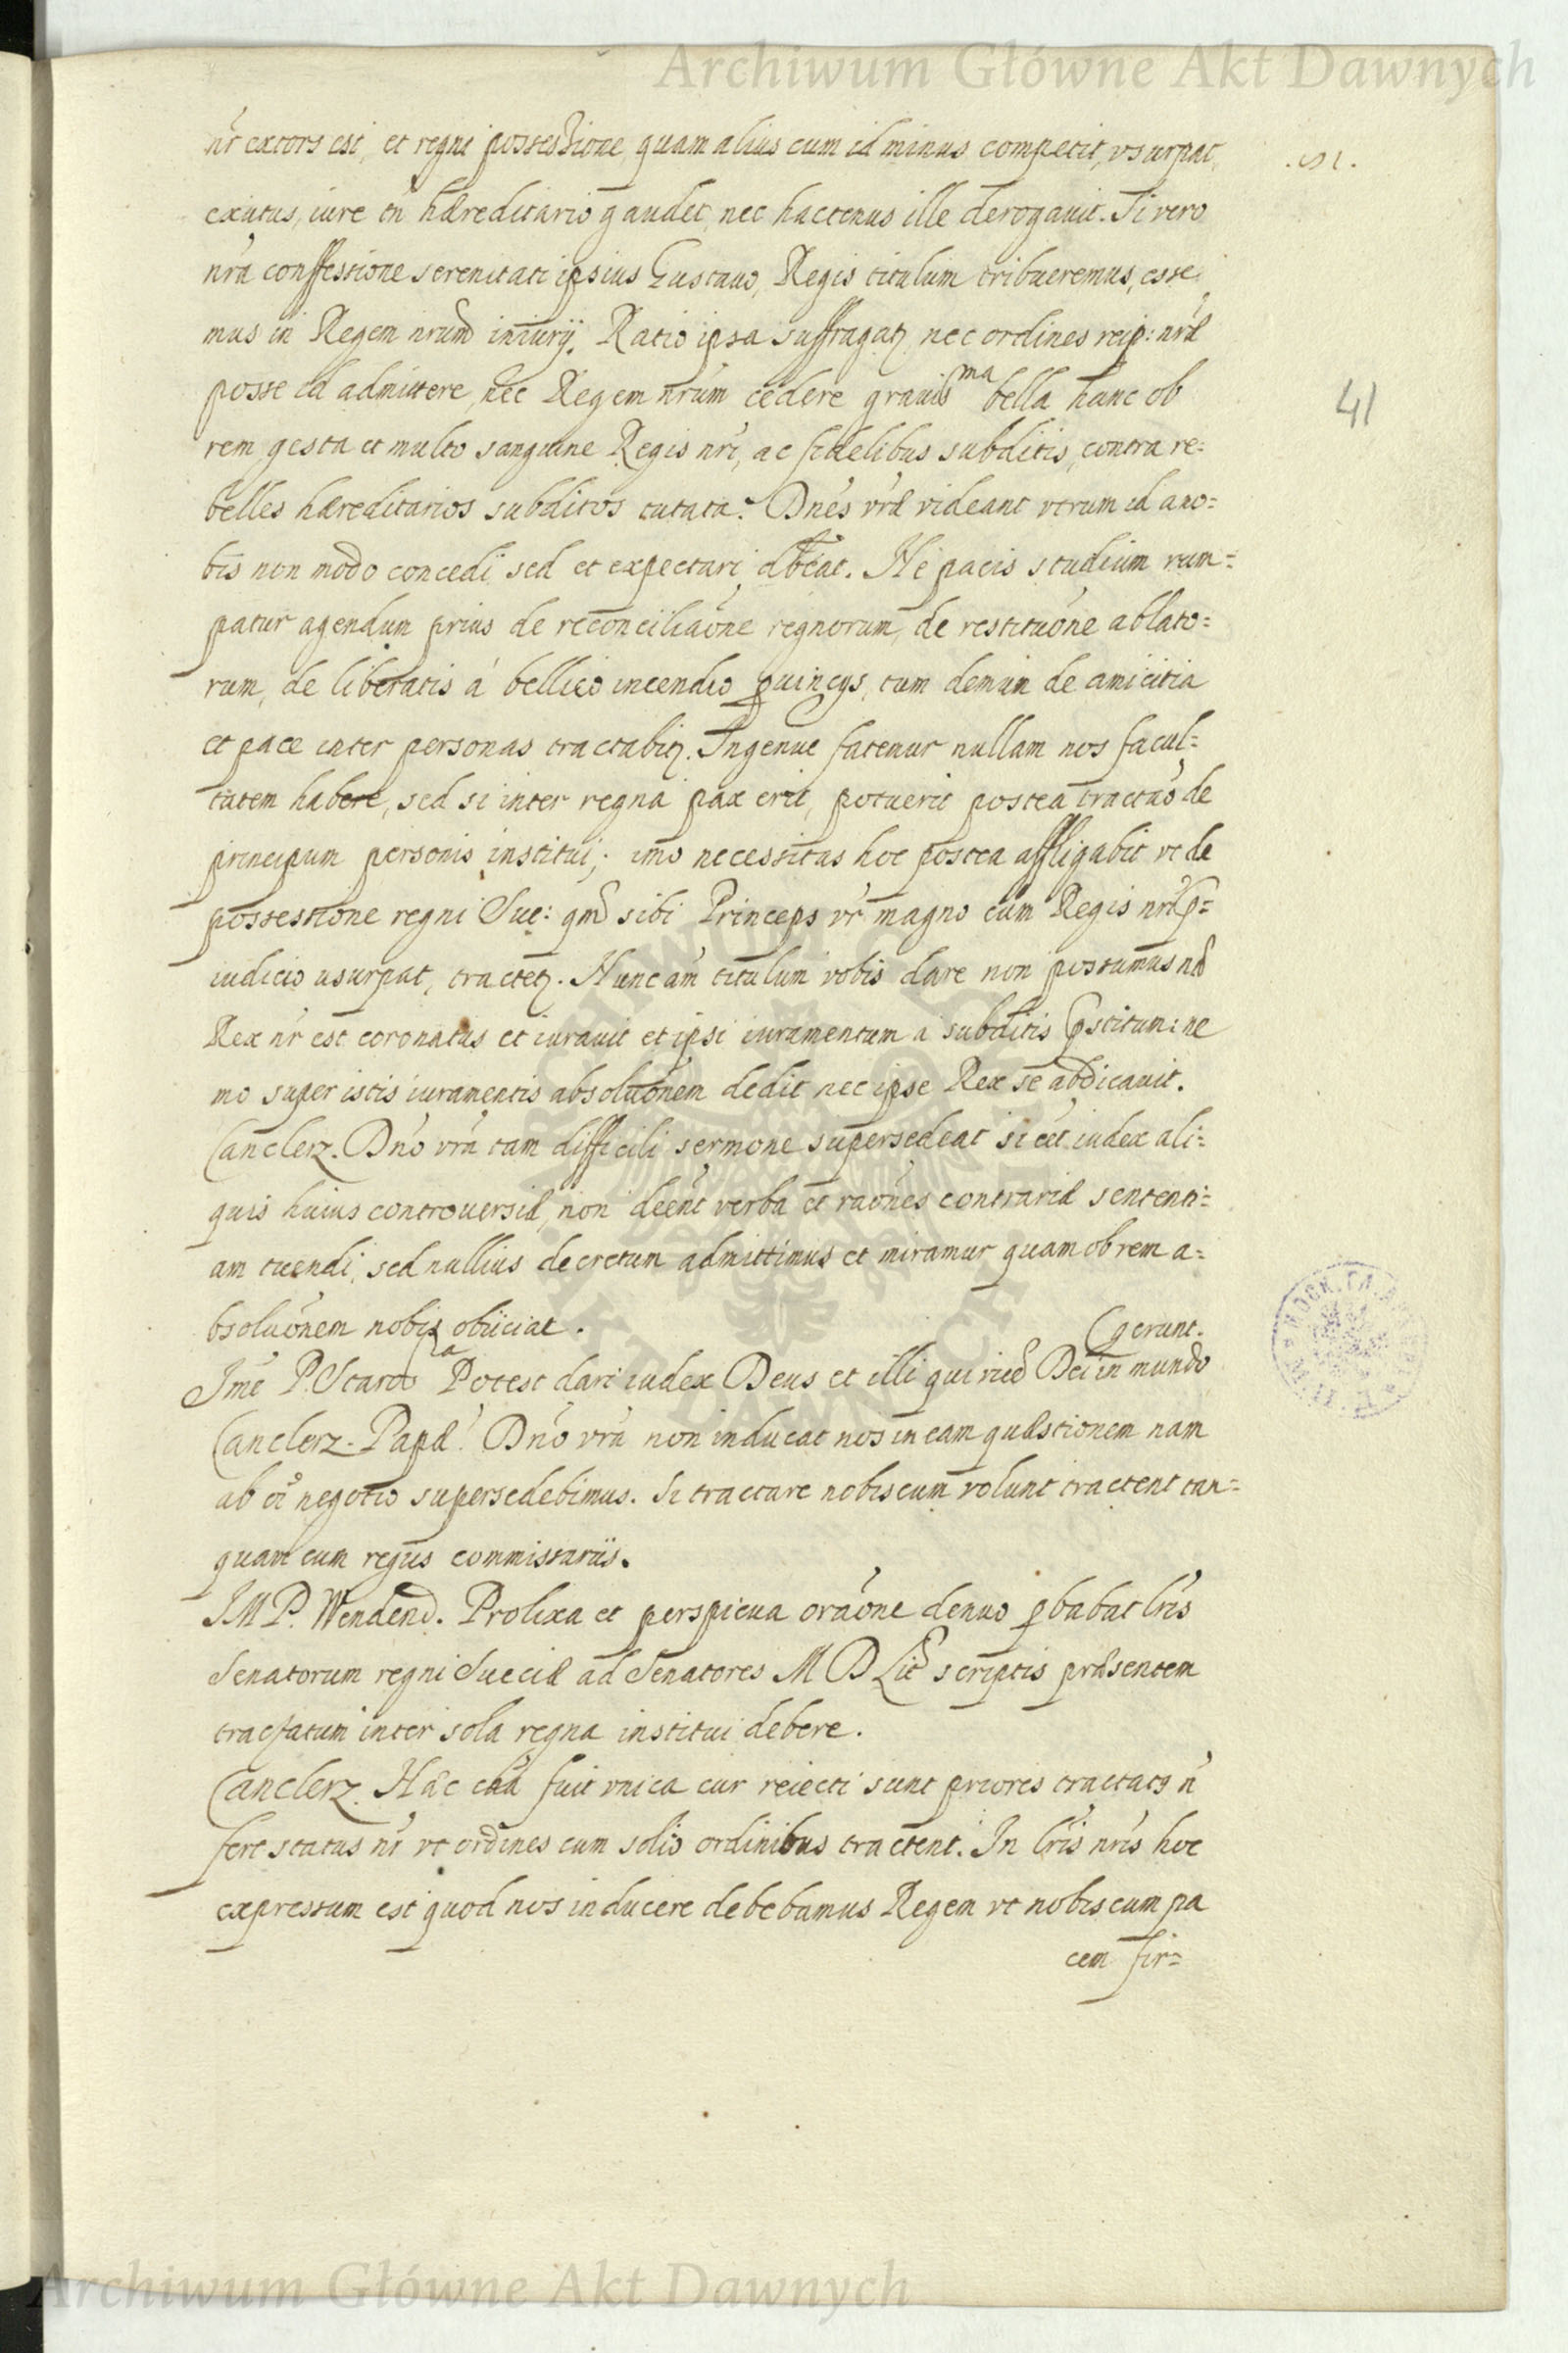 Archiwum Główne Akt Dawnych
nr̃ exors est, et regni possessione, quam alius cum id minus competit, vsurpat,
.51.
exutus, iure tñ hæreditario gaudet, nec hactenus ille derogauit. Si vero
nrã conffessione serenitati ipsius Gustauo, Regis titulum tribueremus, esse
mus in Regem nrum iniurij. Ratio ipsa suffragat nec ordines reip: nræ
posse id admittere, nec Regem nrũm cedere grauisma bella hanc ob
41
rem gesta et multo sanguine Regis nri, ac fidelibus subditis, contra re:
belles hæreditarios subditos tutata. Dnẽs vræ videant vtrum id a no=
bis non modo concedi sed et expectari dbẽat. Ne pacis studium rum=
patur agendum prius de reconciliaõne regnorum, de restituõne ablato=
rum, de liberatis á bellico incendio ꝓuincijs, tum demum de amicitia
et pace inter personas tractabit. Ingenue fatemur nullam nos facul=
tatem habere, sed si inter regna pax erit, potuerit postea tractus de
principum personis institui; imo necessitas hoc postea affligabit vt de
possessione regni Sue: qm̃ sibi Princeps vr̃ magno cum Regis nri p=
iudicio usurpat, tractet. Nunc am̃ titulum vobis dare non possumus nã
Rex nr̃ est coronatus et iurauit et ipsi iuramentum a subditis pstitum: ne
mo super istis iuramentis absoluõnem dedit nec ipse Rex se abdicauit.
Canclerz. Dnõ vrã tam difficili sermone supersedeat si eẽt iudex ali=
quis huius controuersiæ, non deẽnt verba et raõnes contrariæ sententi=
am tuendi, sed nullius decretum admittimus et miramur quam ob rem a=
bsoluõnem nobis obijciat.
(gerunt.
Jmẽ P. Starosta Potest dari iudex Deus et illi qui vicẽ Dei in mundo
Canclerz. Papæ! Dnõ vrã non inducat nos in eam quæstionem nam
ab oĩ negotio supersedebimus. Si tractare nobiscum volunt tractent tan=
quam cum regijs commissariis.
JMP. Wendeñ. Prolixa et perspicua oraõne denuo ꝓbabat lris
Senatorum regni Sueciæ ad Senatores M D Lit scriptis præsentem
tractatum inter sola regna institui debere.
Canclerz. Hæc cãa fuit vnica cur reiecti sunt priores tractatꝯ ñ
fert status nr̃ vt ordines cum solis ordinibus tractent. In lris nris hoc
expressum est quod nos inducere debebamus Regem vt nobiscum pa
cem fir=
Archiwum Główne Akt Dawnych